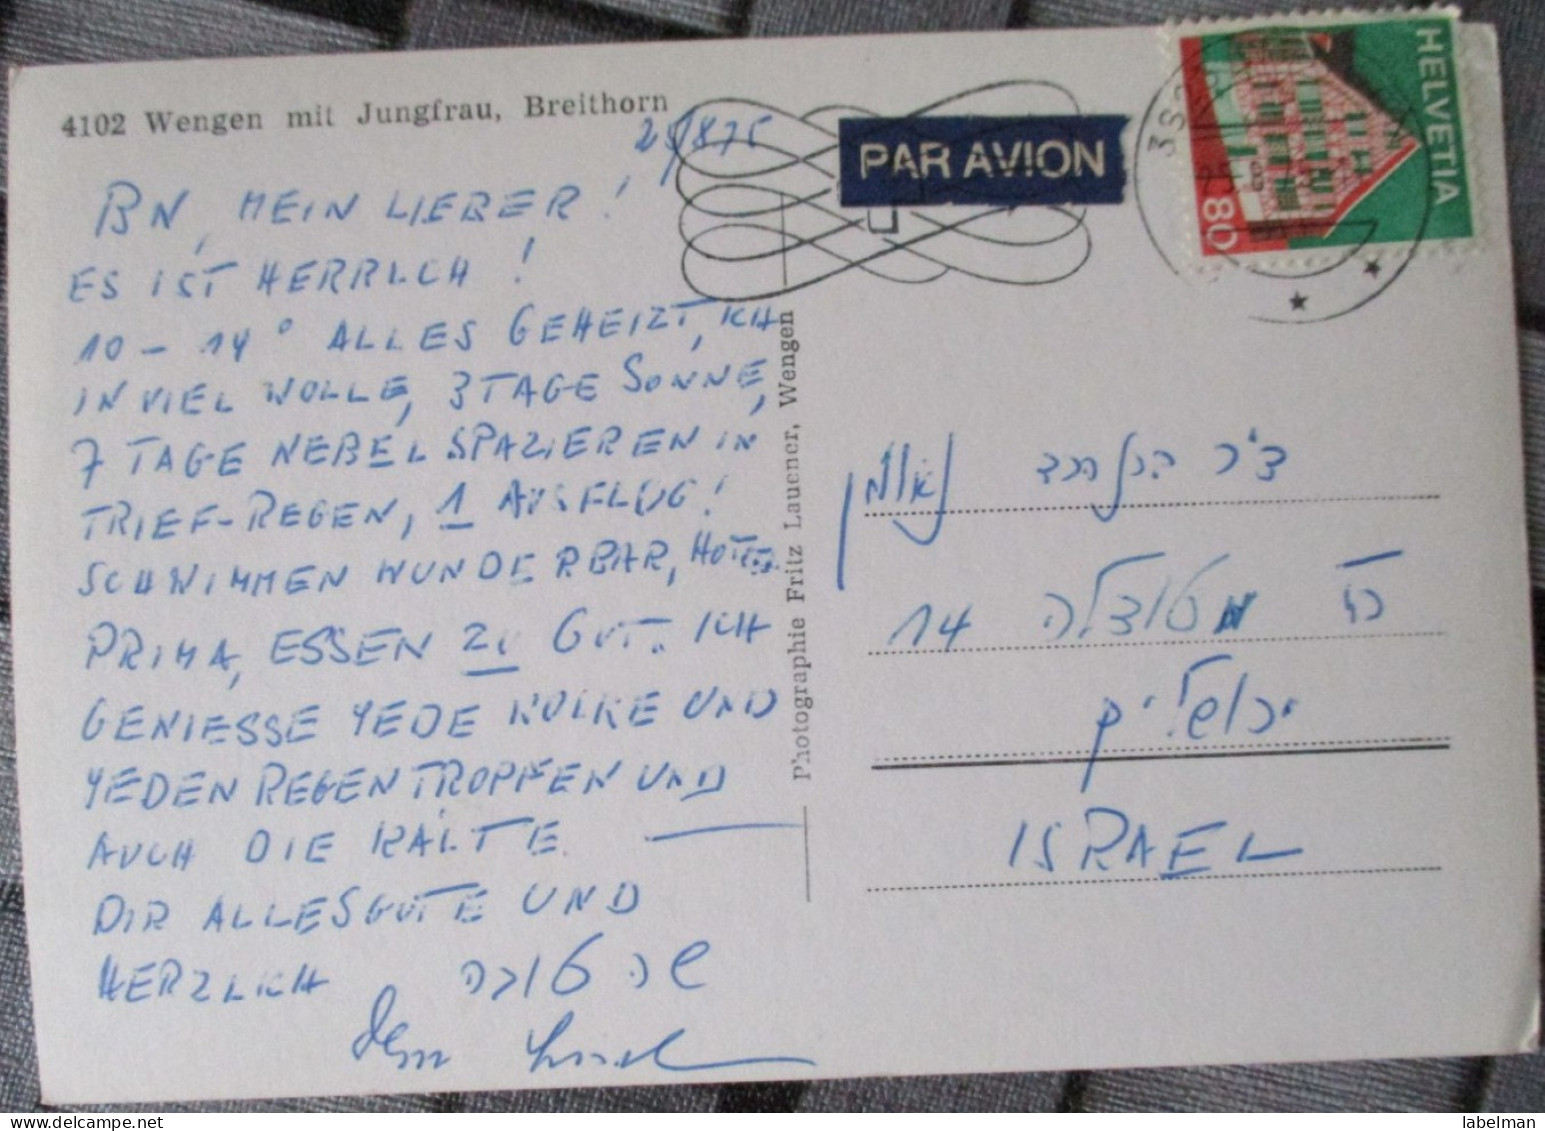 4102 Wengen mit Jungfrau, Breithorn
25/8 75
BN, MEIN LIEBER!
ES IST HERRLCH!
10 - 14° ALLES GEHEIZT, ICH
IN VIEL WOLLE, 3 TAGE SONNE,
7 TAGE NEBEL SPAZIEREN IN
TRIEF-REGEN, 1 AUSFLUG!
SCHWIMMEN WUNDERBAR, HOTEL
PRIMA, ESSEN ZU GUT. ICH
GENIESSE YEDE WOLKE UND
YEDEN REGENTROPFEN UND
AUCH DIE KÄLTE
DIR ALLESGUTE UND
HERZLICH שנה טובה
Photographie Fritz Lauener, Wengen
PAR AVION
HELVETIA
80
ד"ר
14
ירושלים
ISRAEL
labelman